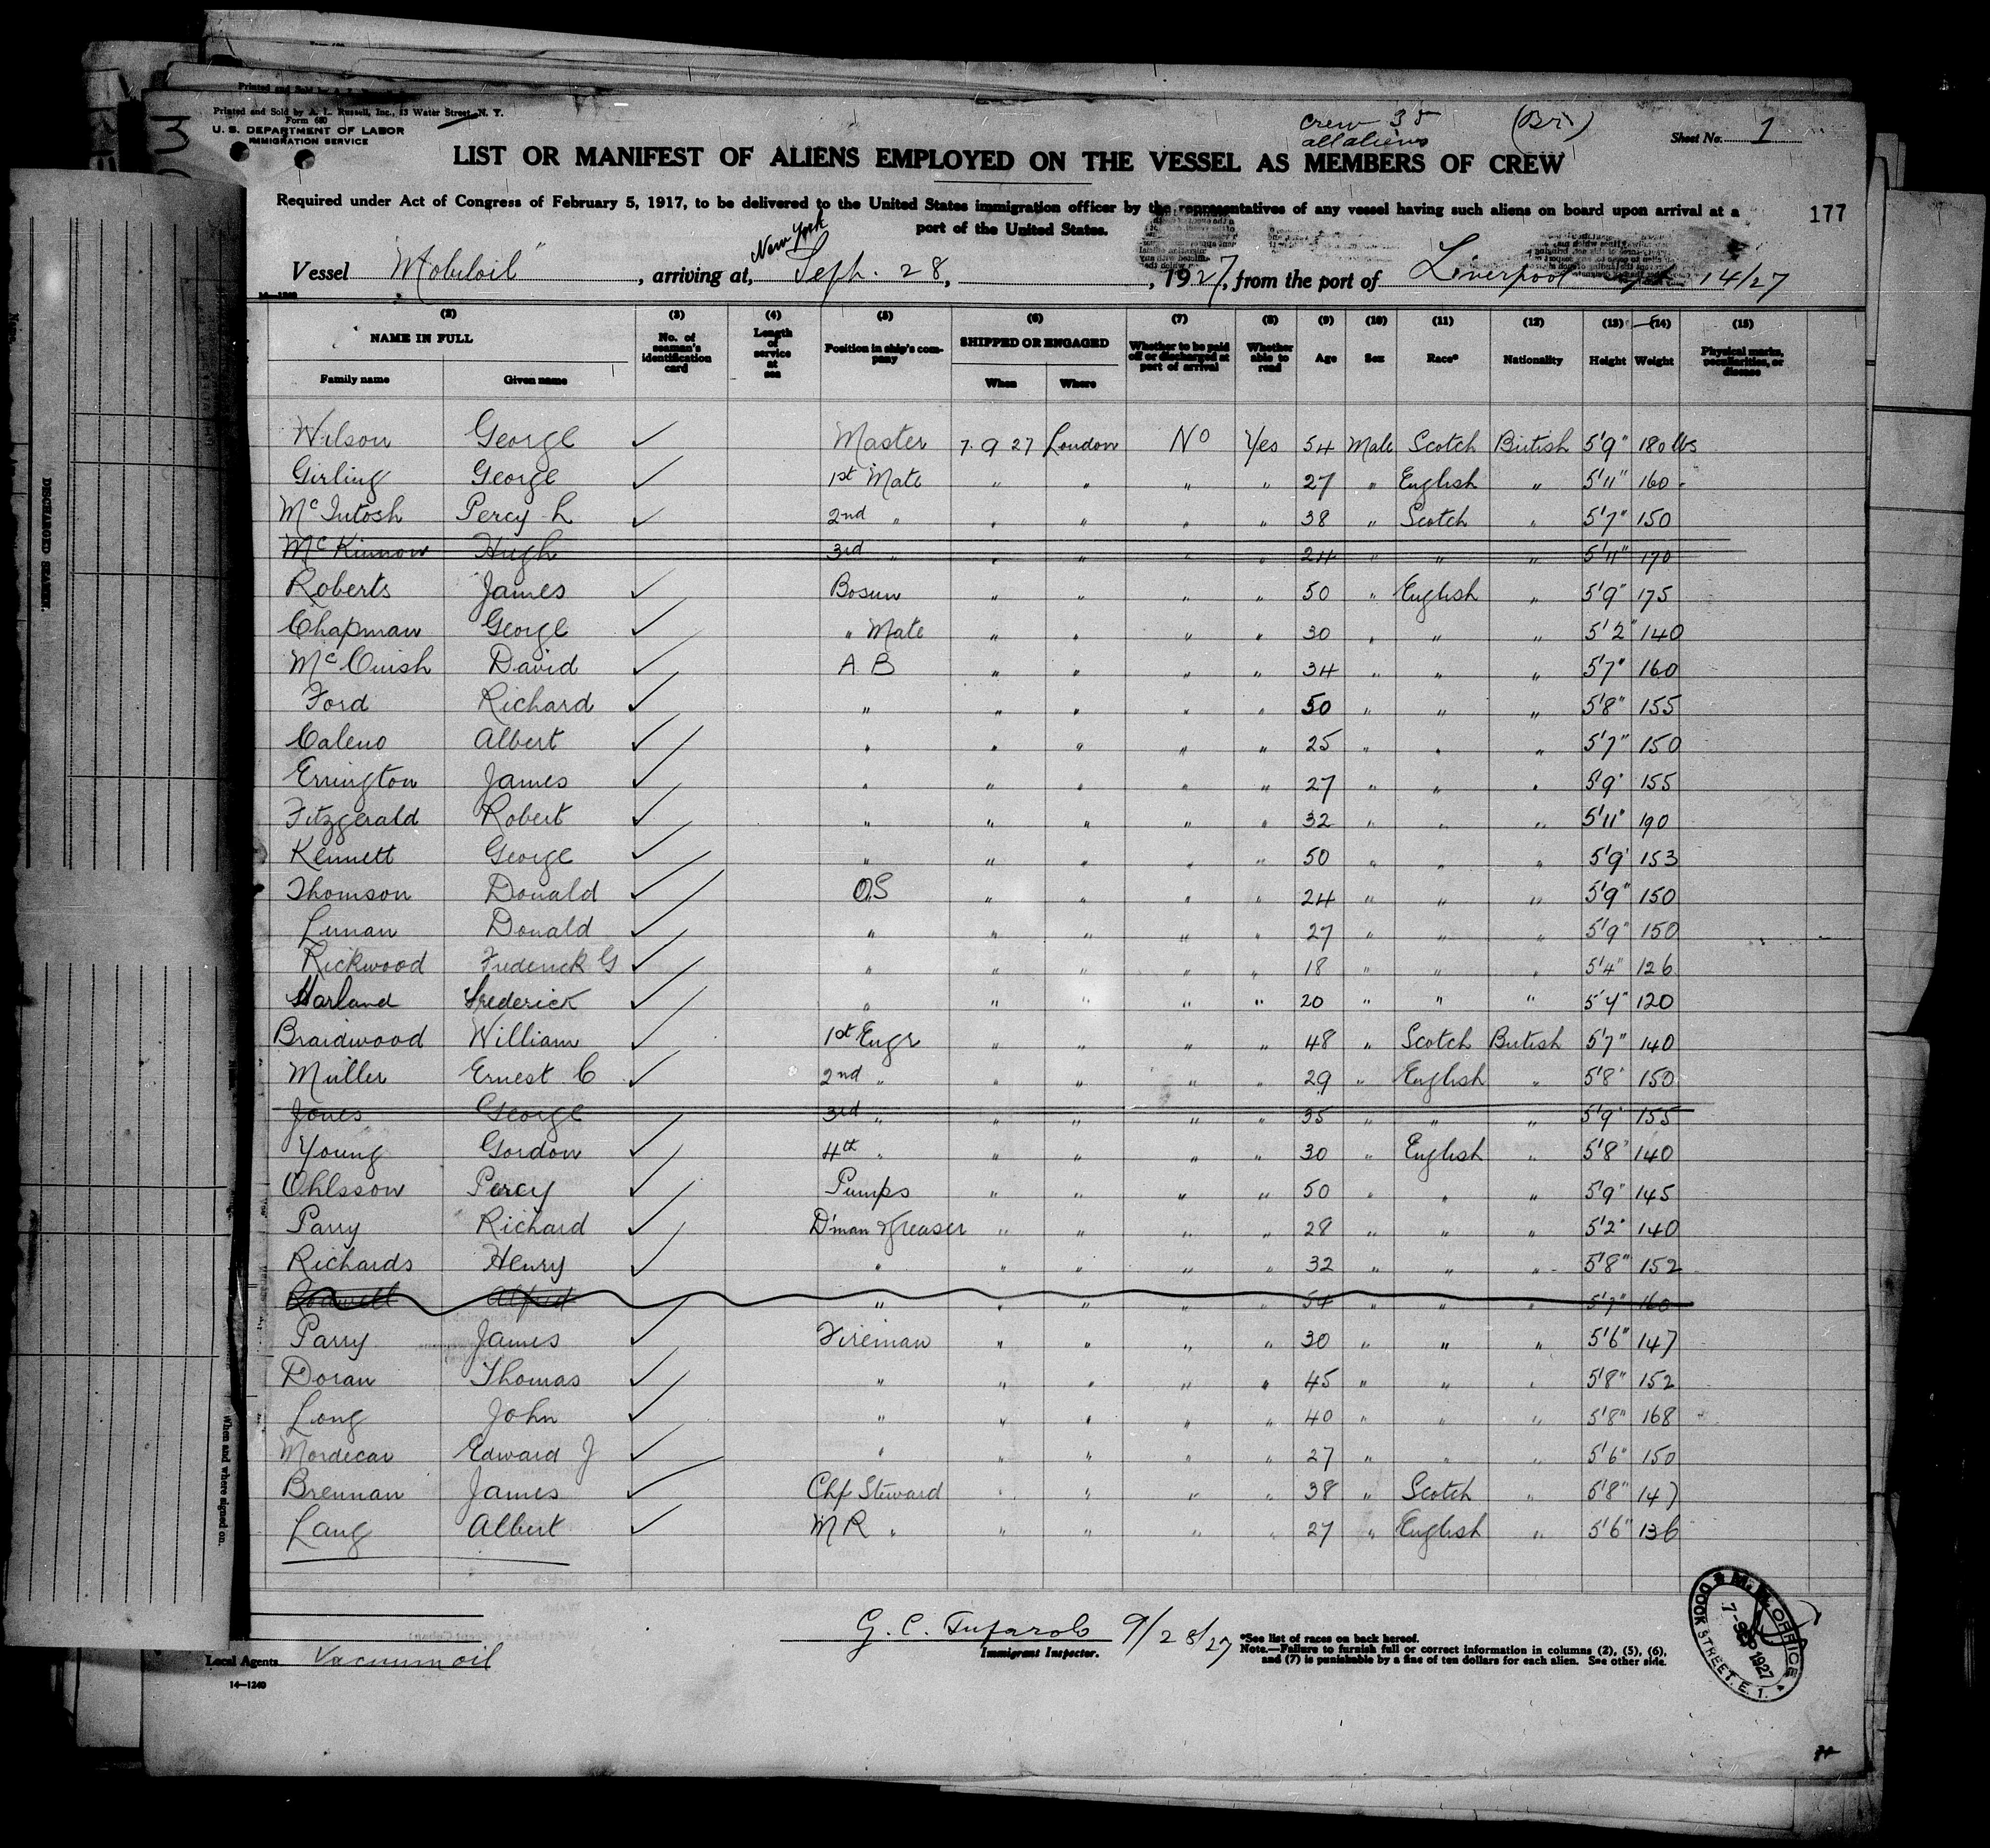 Printed and Sold by A. L. Russell, Inc., 13 Water Street, N. Y.
Form 680
U. S. DEPARTMENT OF LABOR
IMMIGRATION SERVICE
crew 38 (Br)
all aliens
Sheet No. 1
LIST OR MANIFEST OF ALIENS EMPLOYED ON THE VESSEL AS MEMBERS OF CREW
Required under Act of Congress of February 5, 1917, to be delivered to the United States immigration officer by the representatives of any vessel having such aliens on board upon arrival at a
port of the United States.
177
New York
Vessel "Mobiloil", arriving at, Sept. 28, 1927, from the port of Liverpool 14/27
14—1240
(2) (3) (4) (5) (6) (7) (8) (9) (10) (11) (12) (13) (14) (15)
NAME IN FULL No. of seaman's identification card Length of service at sea Position in ship's company SHIPPED OR ENGAGED Whether to be paid off or discharged at port of arrival Whether able to read Age Sex Race* Nationality Height Weight Physical marks, peculiarities, or disease
Family name Given name When Where
Wilson George ✓ Master 7.9.27 London No Yes 54 Male Scotch British 5'9" 180 lbs
Girling George ✓ 1st Mate " " " " 27 " English " 5'11" 160 "
McIntosh Percy L ✓ 2nd " " " " " 38 " Scotch " 5'7" 150
McKinnon Hugh 3rd " " " " " 24 " " " 5'11" 170
Roberts James ✓ Bosun " " " " 50 " English " 5'9" 175
Chapman George ✓ " Mate " " " " 30 " " " 5'2" 140
McCuish David ✓ A B " " " " 34 " " " 5'7" 160
Ford Richard ✓ " " " " " 50 " " " 5'8" 155
Caleno Albert ✓ " " " " " 25 " " " 5'7" 150
Errington James ✓ " " " " " 27 " " " 5'9" 155
Fitzgerald Robert ✓ " " " " " 32 " " " 5'11" 190
Kennett George ✓ " " " " " 50 " " " 5'9" 153
Thomson Donald ✓ OS " " " " 24 " " " 5'9" 150
Lunan Donald ✓ " " " " " 27 " " " 5'9" 150
Rickwood Frederick G ✓ " " " " " 18 " " " 5'4" 126
Harland Frederick ✓ " " " " " 20 " " " 5'4" 120
Braidwood William ✓ 1st Engr " " " " 48 " Scotch British 5'7" 140
Muller Ernest C ✓ 2nd " " " " " 29 " English " 5'8" 150
Jones George 3rd " " " " " 35 " " " 5'9" 155
Young Gordon ✓ 4th " " " " " 30 " English " 5'8" 140
Ohlsson Percy ✓ Pumps " " " " 50 " " " 5'9" 145
Parry Richard ✓ D'man Greaser " " " " 28 " " " 5'2" 140
Richards Henry ✓ " " " " " 32 " " " 5'8" 152
Alfred " " " " " 54 " " " 5'7" 160
Parry James ✓ Fireman " " " " 30 " " " 5'6" 147
Doran Thomas ✓ " " " " " 45 " " " 5'8" 152
Long John ✓ " " " " " 40 " " " 5'8" 168
Mordecai Edward J ✓ " " " " " 27 " " " 5'6" 150
Brennan James ✓ Chf Steward " " " " 38 " Scotch " 5'8" 147
Lang Albert ✓ M R " " " " " 27 " English " 5'6" 136
G. C. Tufarolo 9/28/27
Immigrant Inspector.
*See list of races on back hereof.
Note.—Failure to furnish full or correct information in columns (2), (5), (6),
and (7) is punishable by a fine of ten dollars for each alien. See other side.
Local Agents Vacuum oil
14—1240
M. M. OFFICE
7-SEP 1927
DOCK STREET. E. 1.
DISCHARGED SEAMEN.
When and where signed on.